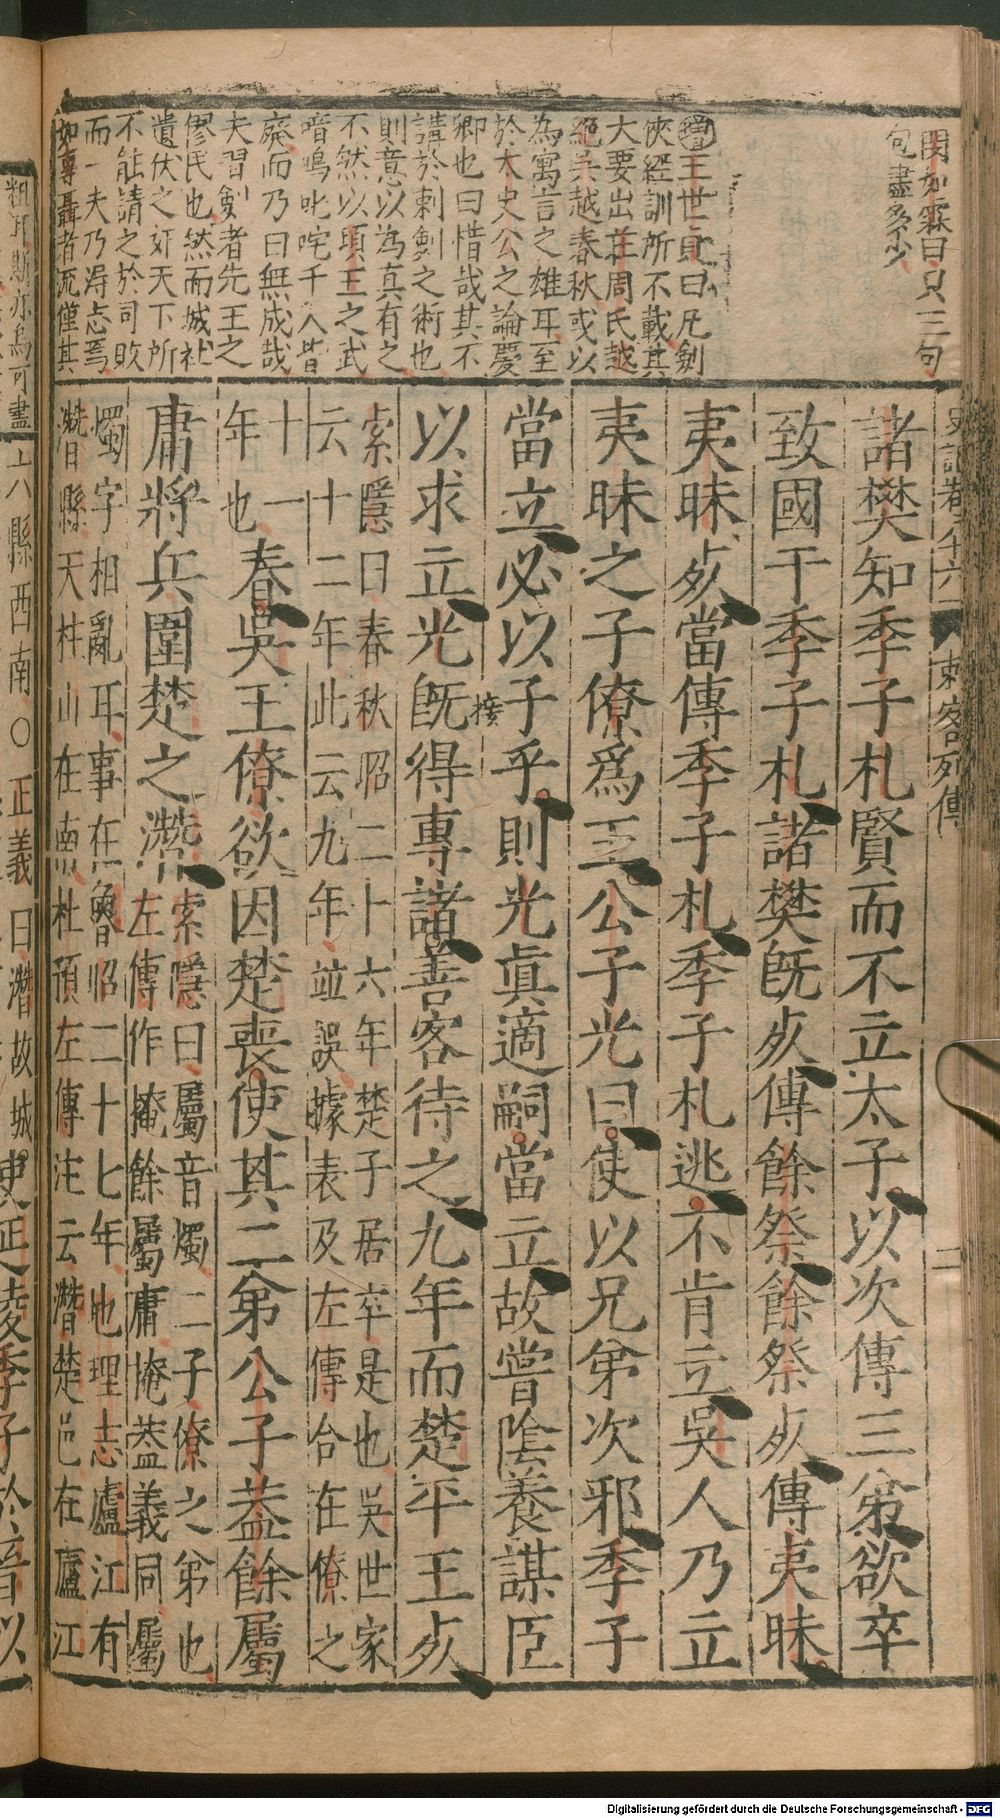 閔如霖曰只三句
包盡多少
增王世貞曰凡劍
俠經訓所不載其
大要出莊周氏越
絕吳越春秋或以
為寓言之雄耳至
於太史公之論慶
卿也曰惜哉其不
講於刺劍之術也
則意以為真有之
不然以項王之武
喑嗚叱咤千人皆
廢而乃曰無成哉
夫習劍者先王之
僇民也然而城社
遺伏之奸天下所
不能請之於司敗
而一夫乃得志焉
如專聶者流僅其
史記卷八十六
刺客列傳
二
諸樊知季子札賢而不立太子以次傳三弟欲卒
致國于季子札諸樊既死傳餘祭餘祭死傳夷眛
夷眛死當傳季子札季子札逃不肯立吳人乃立
夷眛之子僚為王公子光曰使以兄弟次邪季子
當立必以子乎則光真適嗣當立故嘗陰養謀臣
接
以求立光既得專諸善客待之九年而楚平王死
索隱曰春秋昭二十六年楚子居卒是也吳世家
云十二年此云九年竝誤據表及左傳合在僚之
十一
年也
春吳王僚欲因楚喪使其二弟公子蓋餘屬
庸將兵圍楚之灊
索隱曰屬音燭二子僚之弟也
左傳作掩餘屬庸掩蓋義同屬
燭字相亂耳事在魯昭二十七年也理志廬江有
灊縣天柱山在南杜預左傳注云灊楚邑在廬江
六縣西南○正義曰灊故城
使延陵季子於晉以
粗耳斯亦烏可盡
Digitalisierung gefördert durch die Deutsche Forschungsgemeinschaft - DFG